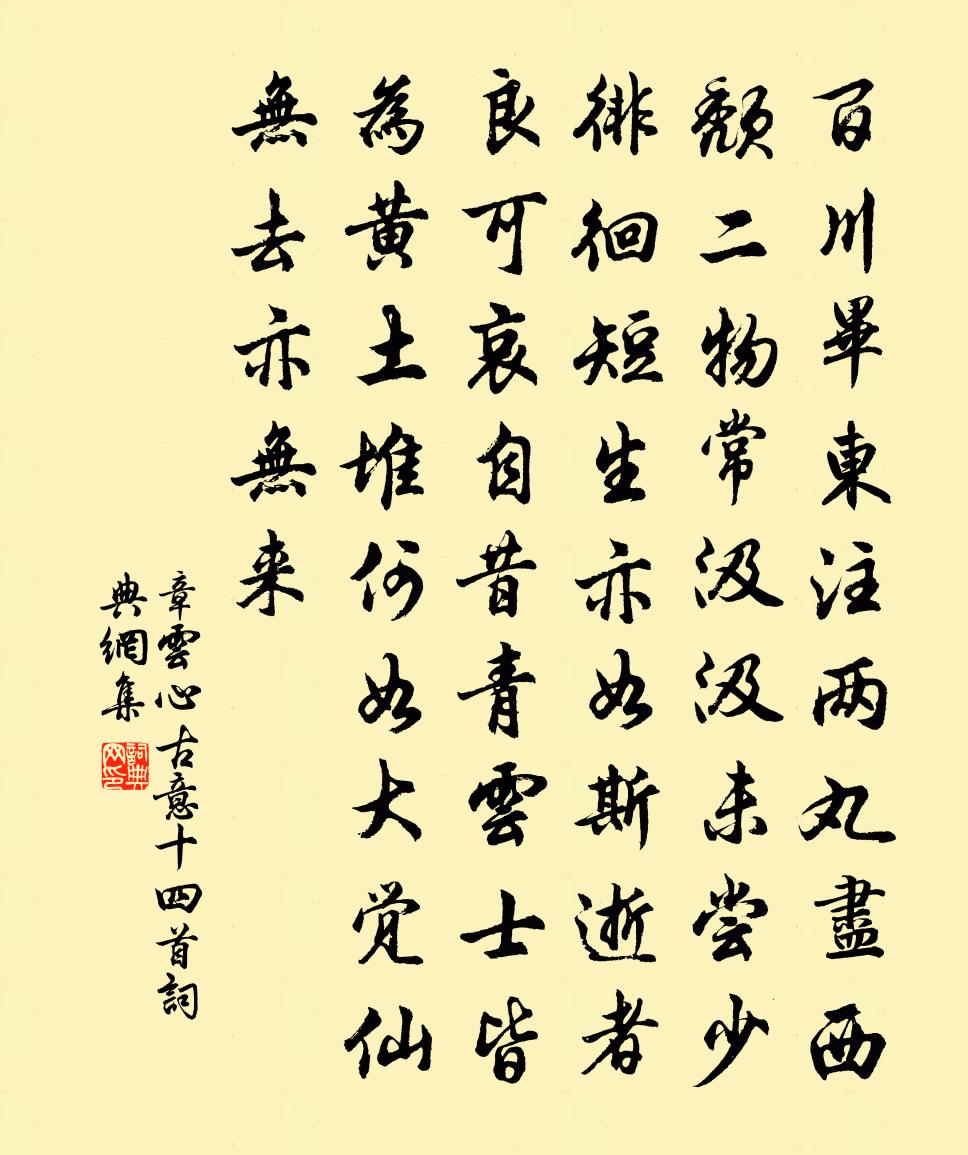 百川畢東注两丸盡西
頹二物常汲汲未嘗少
徘徊短生亦如斯逝者
良可哀自昔青雲士皆
為黃土堆何如大覚仙
無去亦無来
章雲心古意十四首詞
典網集
詞典网印